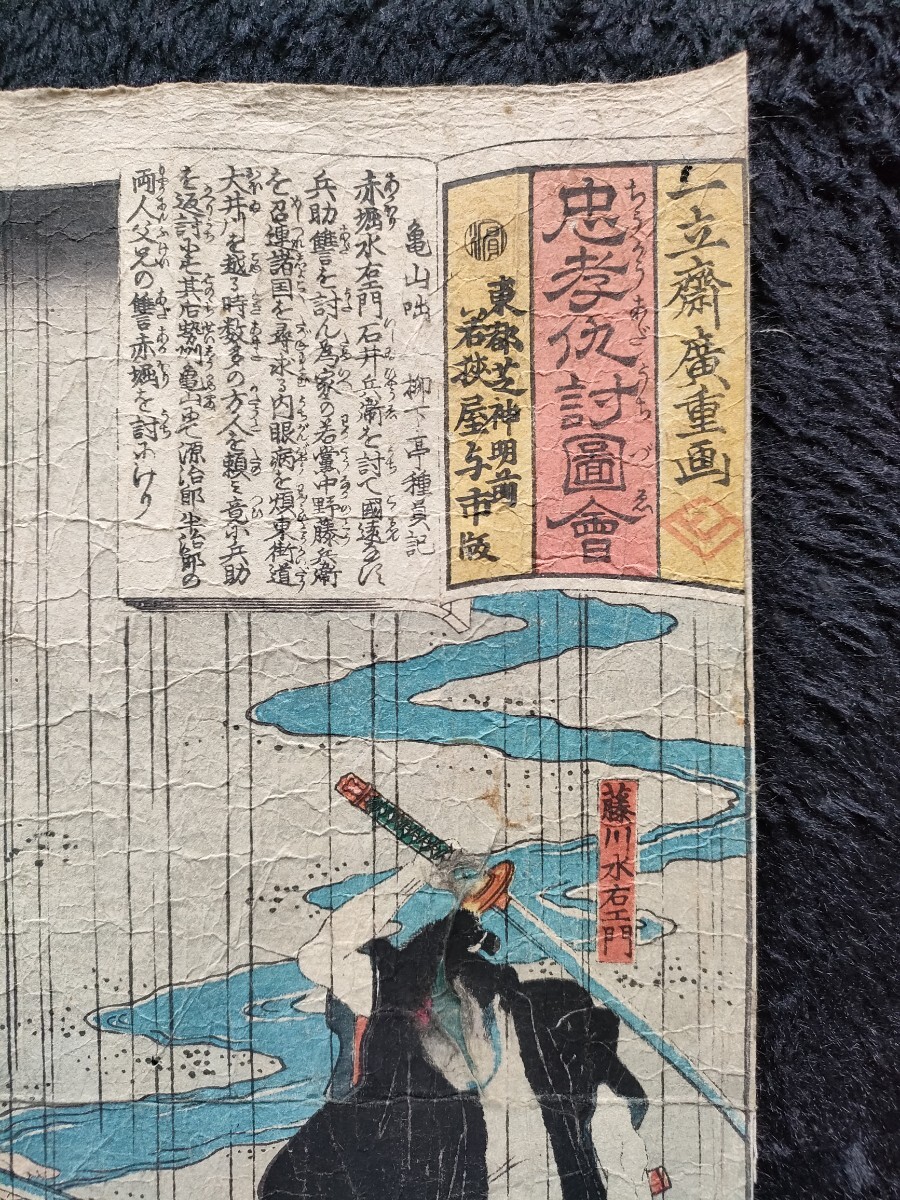 一立齋廣重画
忠孝仇討圖會
ちうかうあだうちづゑ
東都芝神明前
若狭屋与市版
亀山咄 柳下亭種員記
赤堀水右エ門石井兵衛を討て國遠なす
兵助讐を討ん為家の若黨中野藤兵衛
を召連諸国を尋求る内眼病を煩東街道
大井川を越る時数多の方人を頼み竟に兵助
を返討にす其后勢州亀山にて源治郎半治郎の
両人父兄の讐赤堀を討にけり
藤川水右エ門